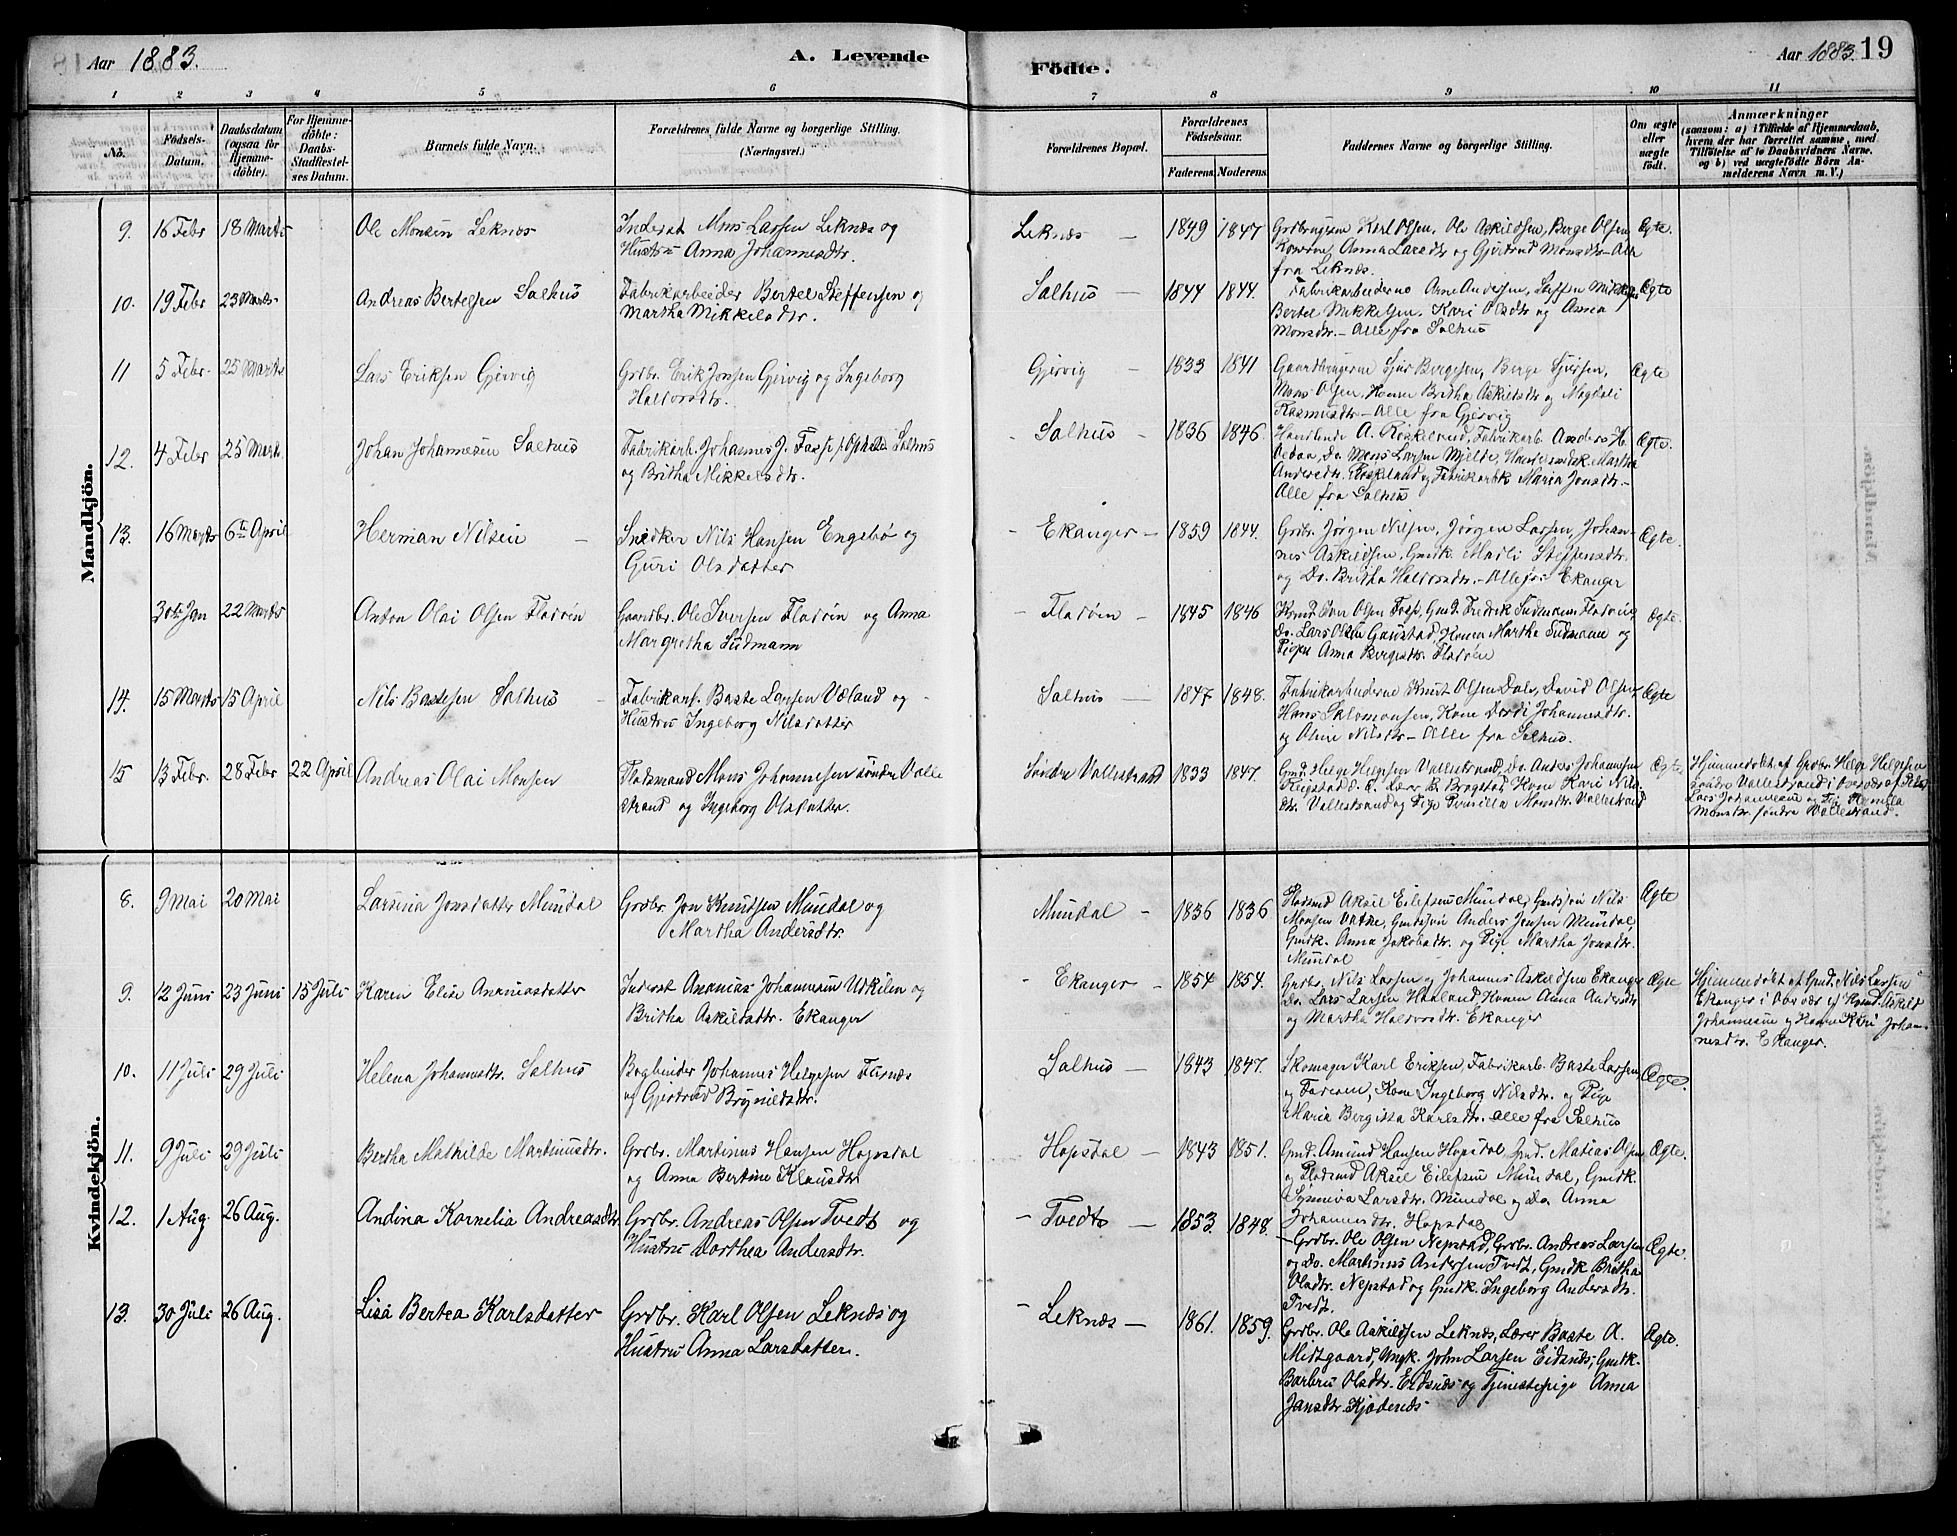 Aar 1883.
A. Levende
Födte.
Aar 1883. 19
1 2 3 4 5 6 7 8 9 10 11
No.
Födsels-Datum.
Daabsdatum (ogsaa for Hjemmedöbte).
For Hjemmedöbte: Daabs-Stadfæstelses Datum.
Barnets fulde Navn.
Forældrenes fulde Navne og borgerlige Stilling. (Næringsvei.)
Forældrenes Bopæl.
Forældrenes Födselsaar.
Faderens. Moderens.
Faddernes Navne og borgerlige Stilling.
Om ægte eller uægte födt.
Anmærkninger
(saasom: a) i Tilfælde af Hjemmedaab,
hvem der har forrettet samme, med
Tilföielse af to Daabsvidners Navne.
og b) ved uægtefödte Börn An-
melderens Navn m. V.)
Mandkjön.
9. 16 Febr 18 Marts Ole Monsen Leknes Inderst Mons Larsen Leknes og Leknes — 1849 1847 Grdbrugerne Karl Olsen, Ole Askildsen, Berge Olsen, Ægte.
Hustru Anna Johannesdtr. Konerne Anna Larsdtr og Gjertrud Monsdtr - Alle
fra Leknes.
10. 19 Febr 23 Marts Andreas Bertelsen Salhus Fabrikarbeider Bertel Steffensen og Salhus — 1844 1844. Fabrikarbeiderne Arne Andersen, Steffen Mikkelsen Ægte
Martha Mikkelsdtr. Bertel Mikkelsen, Kari Olsdtr og Anna
Monsdtr. - Alle fra Salhus
11 5 Febr. 25 Marts Lars Eriksen Gjervig Grdbr. Erik Jonsen Gjervig og Ingeborg Gjervig — 1833 1841 Gaardbrugerne Sjur Bergesen, Berge Sjursen, Ægte
Haldorsdtr. Mons Olsen, Konerne Britha Askildsdtr og Magdeli
Rasmusdtr - Alle fra Gjervig
12. 4 Febr 25 Marts Johan Johannesen Salhus Fabrikarb. Johannes J. Fosse, Salhus - Salhus — 1836 1846. Handlende A. Röskeland, Fabrikarb. Anders H. Ægte.
og Britha Mikkelsdtr. Do. Mons Larsen Mjelde, Martha
Andersdtr. Röskeland og Fabrikarbk Maria Jonsdtr. -
Alle fra Salhus
13. 16 Marts 6te April Herman Nilsen — Snedker Nils Hansen Engebø og - Ekanger — 1859 1844. Grdbr. Jørgen Nilsen, Jørgen Larsen, Johan- Ægte.
Guri Olsdatter nes Askildsen, Gmdk. Marli Steffensdtr.
og Do. Britha Haldorsdtr. - Alle fra Ekanger
30te Jan 22 Marts Anton Olai Olsen Flatøen Gaardbr. Ole Iversen Flatøen og Anna - Flatøen — 1845 1846 Iver Olsen Fosse, Gmd. Fredrik Sudmann Flatøen Ægte.
Margretha Sudmann Do. Lars Olsen Gaustad, Konen Martha Sudmann og
Pigen Anna Bergesdtr. Flatøen
14. 15 Marts 15 April Nils Bastesen Salhus — Fabrikarb. Baste Larsen Veland og - Salhus — 1847 1848. Fabrikarbeiderne Knut Olsen Dale, David Olsen, Ægte
Hustru Ingeborg Nilsdatter Hans Salomonsen, Kone Dordi Johannesdtr.
og Oline Nilsdtr - Alle fra Salhus.
15 13 Febr. 28 Febr 22 April Andreas Olai Monsen Pladsmand Mons Johannesen søndre Valle Søndre Vallestrand 1833 1847. Gmd. Helge Helgesen Vallestrand, Do. Anders Johannesen Ægte Hjemmedøbt af Grdbr. Helge Helgesen
strand og Ingeborg Olsdatter. Reigstad, Lærer B. Brogstad, Kone Kari Nils søndre Vallestrand i Overvær af
dtr. Vallestrand og Pige Pernilla Monsdtr. Vallestrand Lars Johannesen og Pige Pernilla
Monsdtr. søndre Vallestrand.
Kvindekjön.
8. 9 Mai 20 Mai Larsina Jonsdatter Mundal Grdbr. Jon Knutsen Mundal og Mundal — 1836 1836 Pladsmd Aksel Eilefsen Mundal, Gmdssøn Nils Ægte
Martha Andersdtr. Monsen Vatne, Gmdssøn Anders Jensen Mundal,
Gmdk. Anna Jakobsdtr. og Pige Martha Jonsdtr.
Mundal
9. 12 Juni 23 Juni 15 Juli Karen Elise Ananiasdatter Inderst Ananias Johannesen Udkilen og - Ekanger — 1854 1854. Grdbr. Nils Larsen og Johannes Askildsen Ekanger Ægte Hjemmedøbt af Gmd. Nils Larsen
Britha Askildsdtr. Ekanger Do. Lars Larsen Haaland, Konen Anna Andersdtr Ekanger i Overvær af Gmd. Askild
og Martha Haldorsdtr. Ekanger Johannesen og Konen Kari Johan-
nesdtr. Ekanger.
10. 11 Juli 29 Juli Helena Johannesdtr. Salhus Bogbinder Johannes Helgesen Furnes Salhus — 1843 1847. Skomager Karl Eriksen, Fabrikarb. Baste Larsen, Ægte.
og Gjertrud Brynildsdtr. og Kone Ingeborg Nilsdtr. og Pige
Maria Bergitta Karlsdtr. Alle fra Salhus
11. 9 Juli 29 Juli Bertha Mathilde Martinusdtr. Grdbr. Martinus Hansen Hopsdal Hopsdal — 1843 1851. Gmd. Amund Hansen Hopsdal, Gmd. Matias Olsen Ægte.
og Anna Bertine Klausdtr og Pladsmd Aksel Eilefsen Mundal, Gmdk.
Synneva Larsdtr. Mundal og Do. Anna
Johannesdtr. Hopsdal
12. 1 Aug. 26 Aug. Andina Kornelia Andreasdtr Grdbr. Andreas Olsen Tvedt og - Tvedt — 1853. 1848. - Grdbr. Ole Olsen Nepstad, Grdbr. Andreas Larsen Ægte.
Hustru Dorthea Andersdtr. og Do. Martinus Andersen Tvedt, Gmdk Britha
Olsdtr. Nepstad og Gmdk. Ingeborg Andersdtr.
Tvedt.
13. 30 Juli 26 Aug. Lisa Bertea Karlsdatter Grdbr. Karl Olsen Leknes og - Leknes — 1861. 1859. Grdbr. Ole Askildsen Leknes, Lærer Baste A. Ægte
Hustru Anna Larsdatter. Midtgaard, Ungk. John Larsen Eidsnes, Gmdk.
Barbru Olsdtr. Eidsnes og Tjenestepige Anna
Jansdtr. Kjodernes